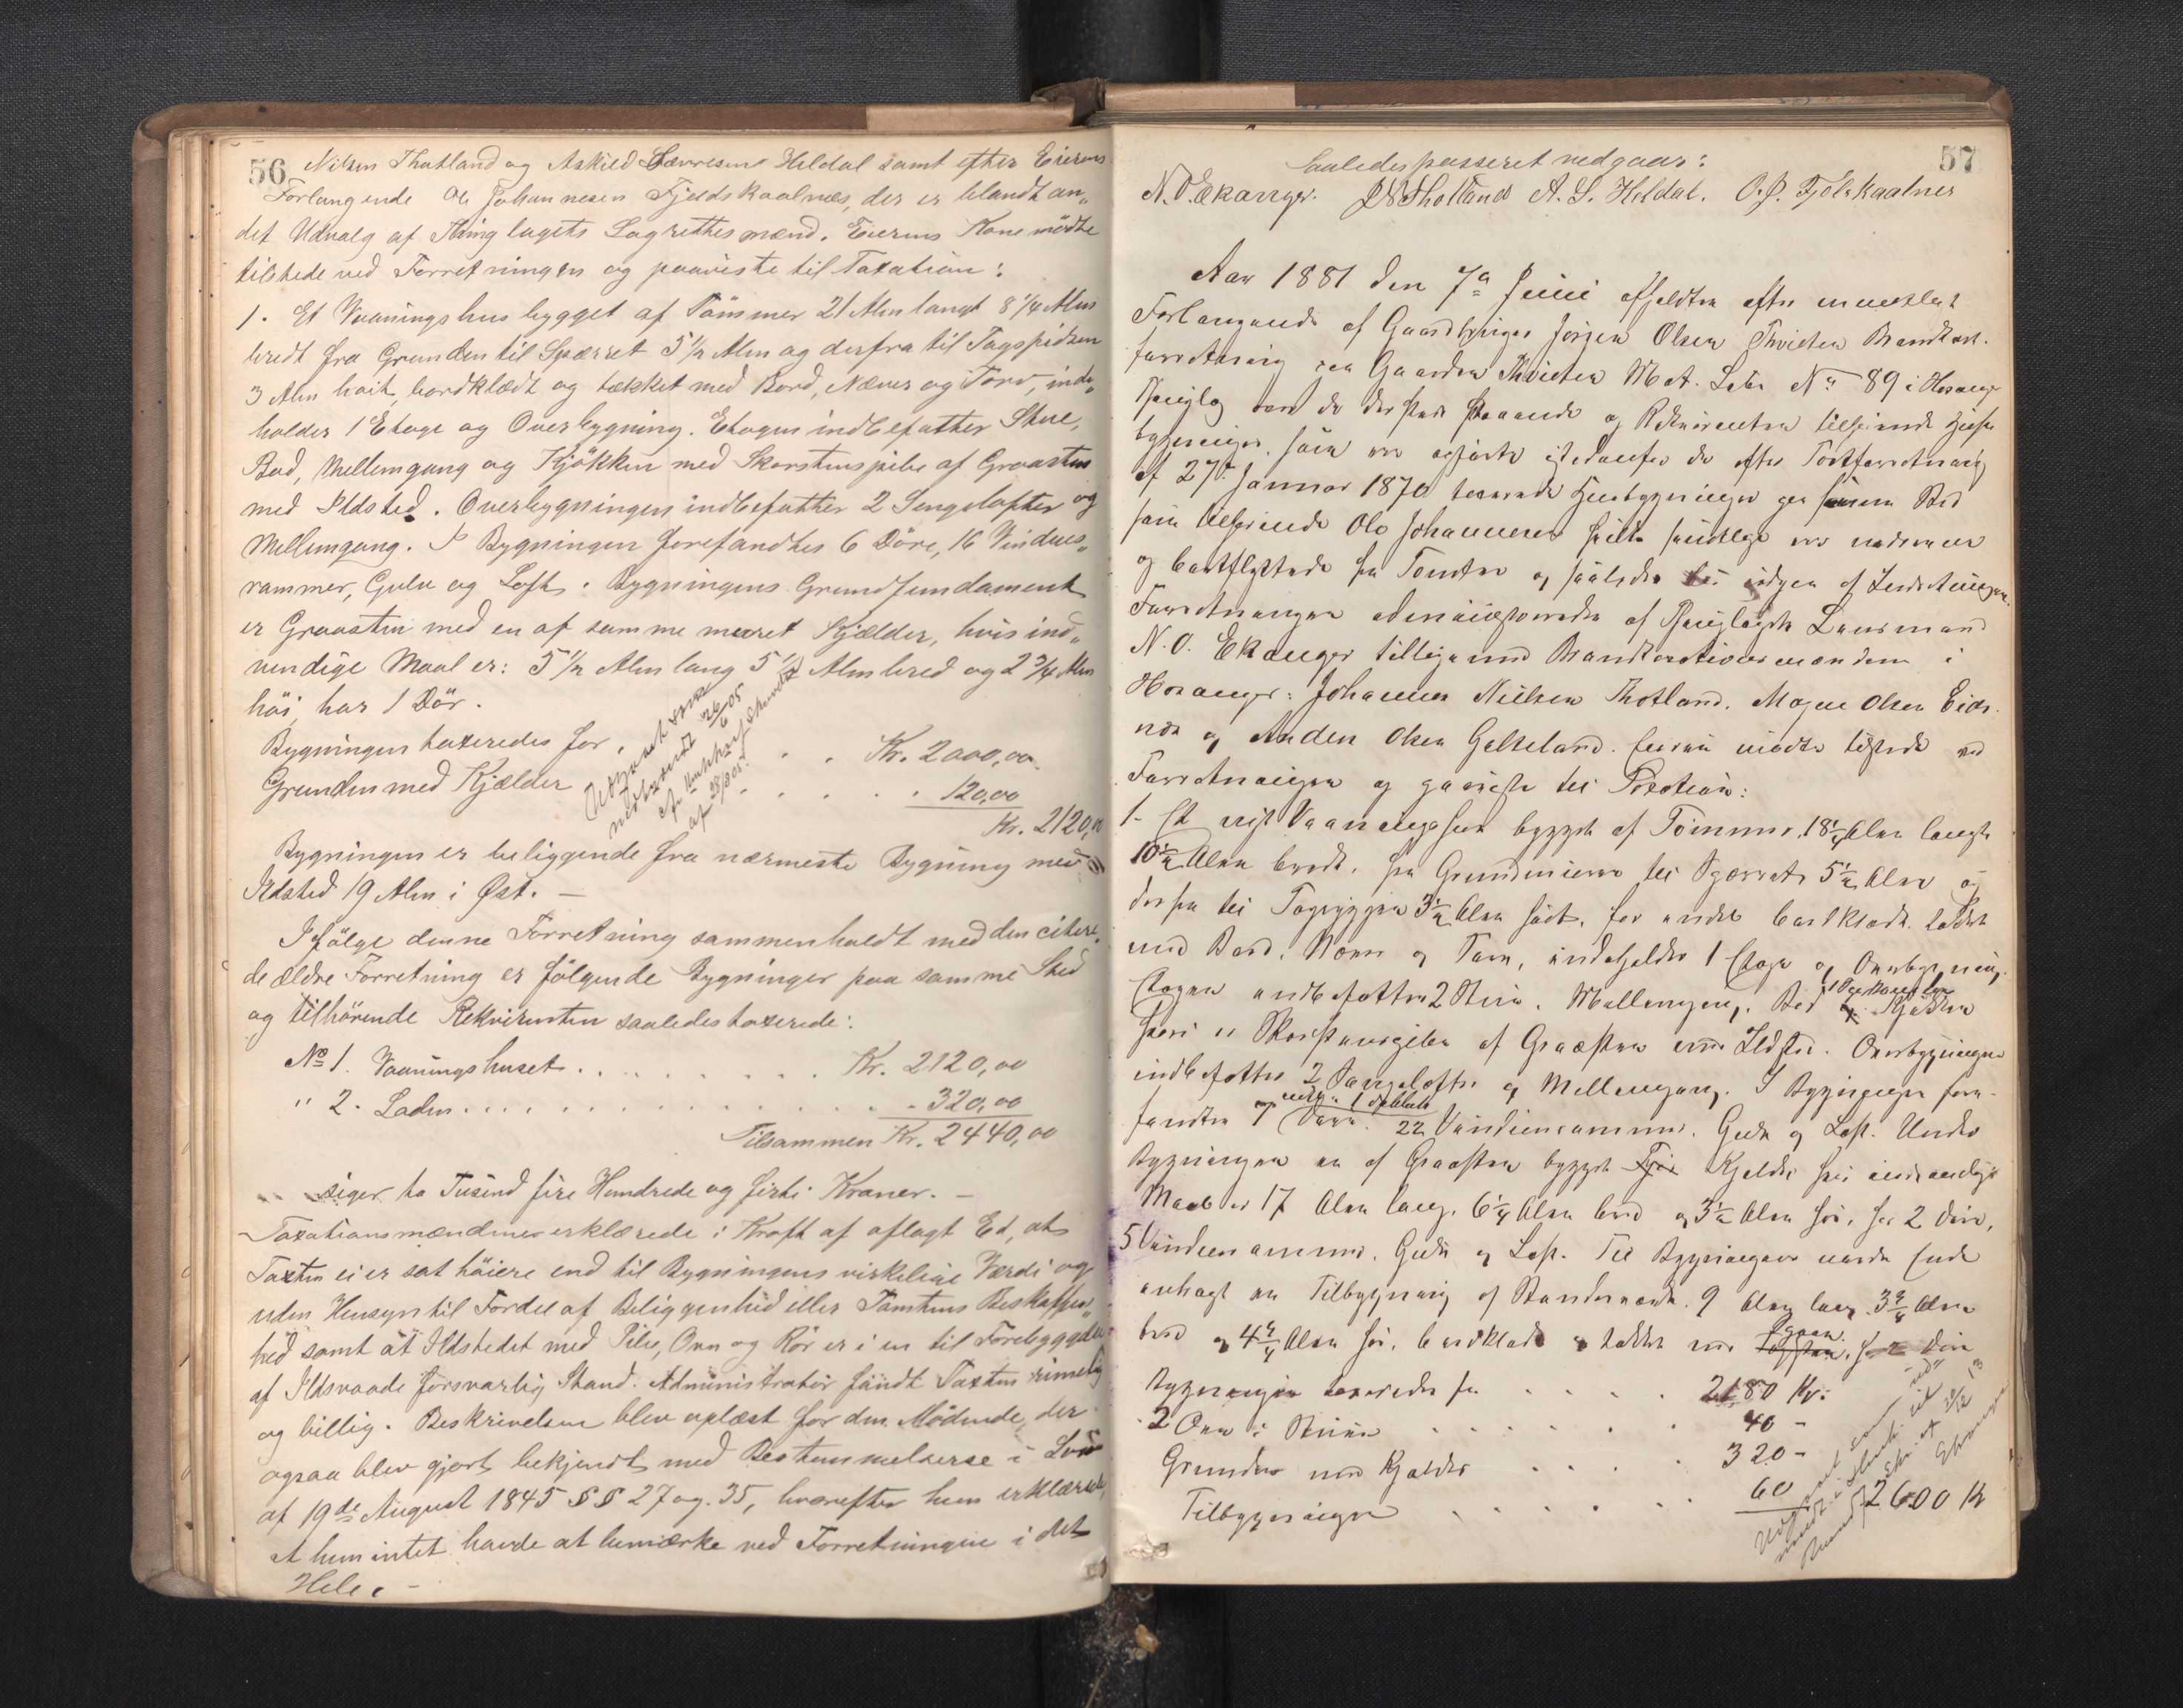 56
Nilsen Thotland og Askild Lavresens Heldal samt efter Eierens
Forlangende Ole Johannesen Fjeldskaalnes, der er blandt an„
det Udvalg af Thinglagets Lagrettesmænd. Eierens Kone mödte
tilstede ved Forretningen og paaviste til Taxation:
1. Et Vaaningshus bygget af Tömmer 21 Alen langt 8 1/4 Alen
bredt fra Grunden til Spærret 5 1/2 Alen og derfra til Tagspidsen
3 Alen höit, bordklædt og tækket med Bord, Næver og Torv, inde„
holder 1 Etage og Overbygning. Etagen indbefatter Stue,
Bod, Mellemgang og Kjökken med Skorstenspibe af Graasten
med Ildsted. Overbygningen indbefatter 2 Sengelofter og
Mellemgang. I Bygningen forefandtes 6 Döre, 16 Vindues„
rammer, Gulv og Loft. Bygningens Grundfundament
er Graasten med en af samme muret Kjælder, hvis ind„
vendige Maal er: 5 1/2 Alen lang 5 1/2 Alen bred og 2 3/4 Alen
höi, har 1 Dör.
Bygningen taxeredes for . . . Kr. 2000,00
Grunden med Kjælder . . . . . 120,00
Kr. 2120,00
Bygningen er beliggende fra nærmeste Bygning med
Ildsted 19 Alen i Øst. —
Ifölge denne Forretning sammenholdt med den citere„
de ældre Forretning er fölgende Bygninger paa samme Sted
og tilhörende Rekvirenten saaledes taxerede:
No 1. Vaaningshuset . . . . . . . . . Kr. 2120,00
" 2. Laden . . . . . . . . . . . . . - 320,00
Tilsammen Kr. 2440,00
siger to Tusind fire Hundrede og firti Kroner. —
Taxationsmændene erklærede i Kraft af aflagt Ed, at
Taxten ei er sat höiere end til Bygningens virkelige Værdi og
uden Hensyn til Fordel af Beliggenhed eller Tomtens Beskaffen„
hed samt at Ildstedet med Pibe, Ovn og Rör er i en til Forebyggelse
af Ildsvaade forsvarlig Stand. Administrator fandt Taxten rimelig
og billig. Beskrivelsen blev oplæst for den Mödende, der
ogsaa blev gjort bekjendt med Bestemmelserne i Lov
af 19de August 1845 §§ 27 og 35, hvorefter hun erklærede,
at hun intet havde at bemærke ved Forretningen i det
Hele. —
57
Saaledes passeret vedgaar:
N. O. Ekanger. J N Thotland A. L. Heldal. O. J. Fjelskaalnes
Aar 1881 den 7de Juni afholdtes efter mundtligt
Forlangende af Gaardbruger Jörgen Olsen Thveiten Brandtaxt-
forretning paa Gaarden Thveiten Mat. Löbe No 89 i Hosanger
Thinglag over de der paa staaende og Rekvirenten tilhörende Huse
bygninger, som ere opförte istedenfor de efter Taxtforretning
af 27de Januar 1870 taxerede Husbygninger paa samme Sted
som tilhörende Ole Johannesen hvilke samtlige ere nedrevne
og bortflyttede fra Tomten og saaledes at udgaa af Indretningen.
Forretningen administreredes af Thinglagets Lensmand
N. O. Ekanger tilligemed Brandtaxationsmændene i
Hosanger: Johannes Nielsen Thotland, Mogne Olsen Eids-
nes og Anders Olsen Galteland. Eieren mödte tilstede ved
Forretningen og paaviste til Taxation:
1. Et nyt Vaaningshus bygget af Tömmer, 18 1/4 Alen langt
10 1/2 Alen bredt, fra Grundmuren til Spærret 5 1/2 Alen og
derfra til Tagryggen 3 1/2 Alen höit, for endel bordklædt, tækket
med Bord, Næver og Torv, indeholder 1 Etage og Overbygning.
Etagen indbefatter 2 Stuer, Mellemgang, Bod og Kjökken
hvori er Skorstenspibe af Graasten med Ildsted. Overbygningen
indbefatter 2 Sengelofter og Mellemgang. I Bygningen fore-
fandtes 9 Döre, 22 Vinduesrammer, Gulv og Loft. Under
Bygningen en af Graasten bygget Kjelder hvis indvendige
Maal er 17 Alen lang, 6 1/4 Alen bred og 3 1/2 Alen höi, har 2 Döre,
5 Vinduesrammer, Gulv og Loft. Til Bygningens nordre Ende
anbragt en Tilbygning af Standerværk, 9 Alen lang, 3 3/4 Alen
bred og 4 3/4 Alen höi, bordklædt og tækket med Spaan. har 2 Döre
Bygningen taxeredes for . . . . . 2180 Kr.
2 Ovne i Stuerne . . . . . . 40 -
Grunden med Kjælder . . . . . 320 -
Tilbygningen . . . . . . 60 2600 Kr